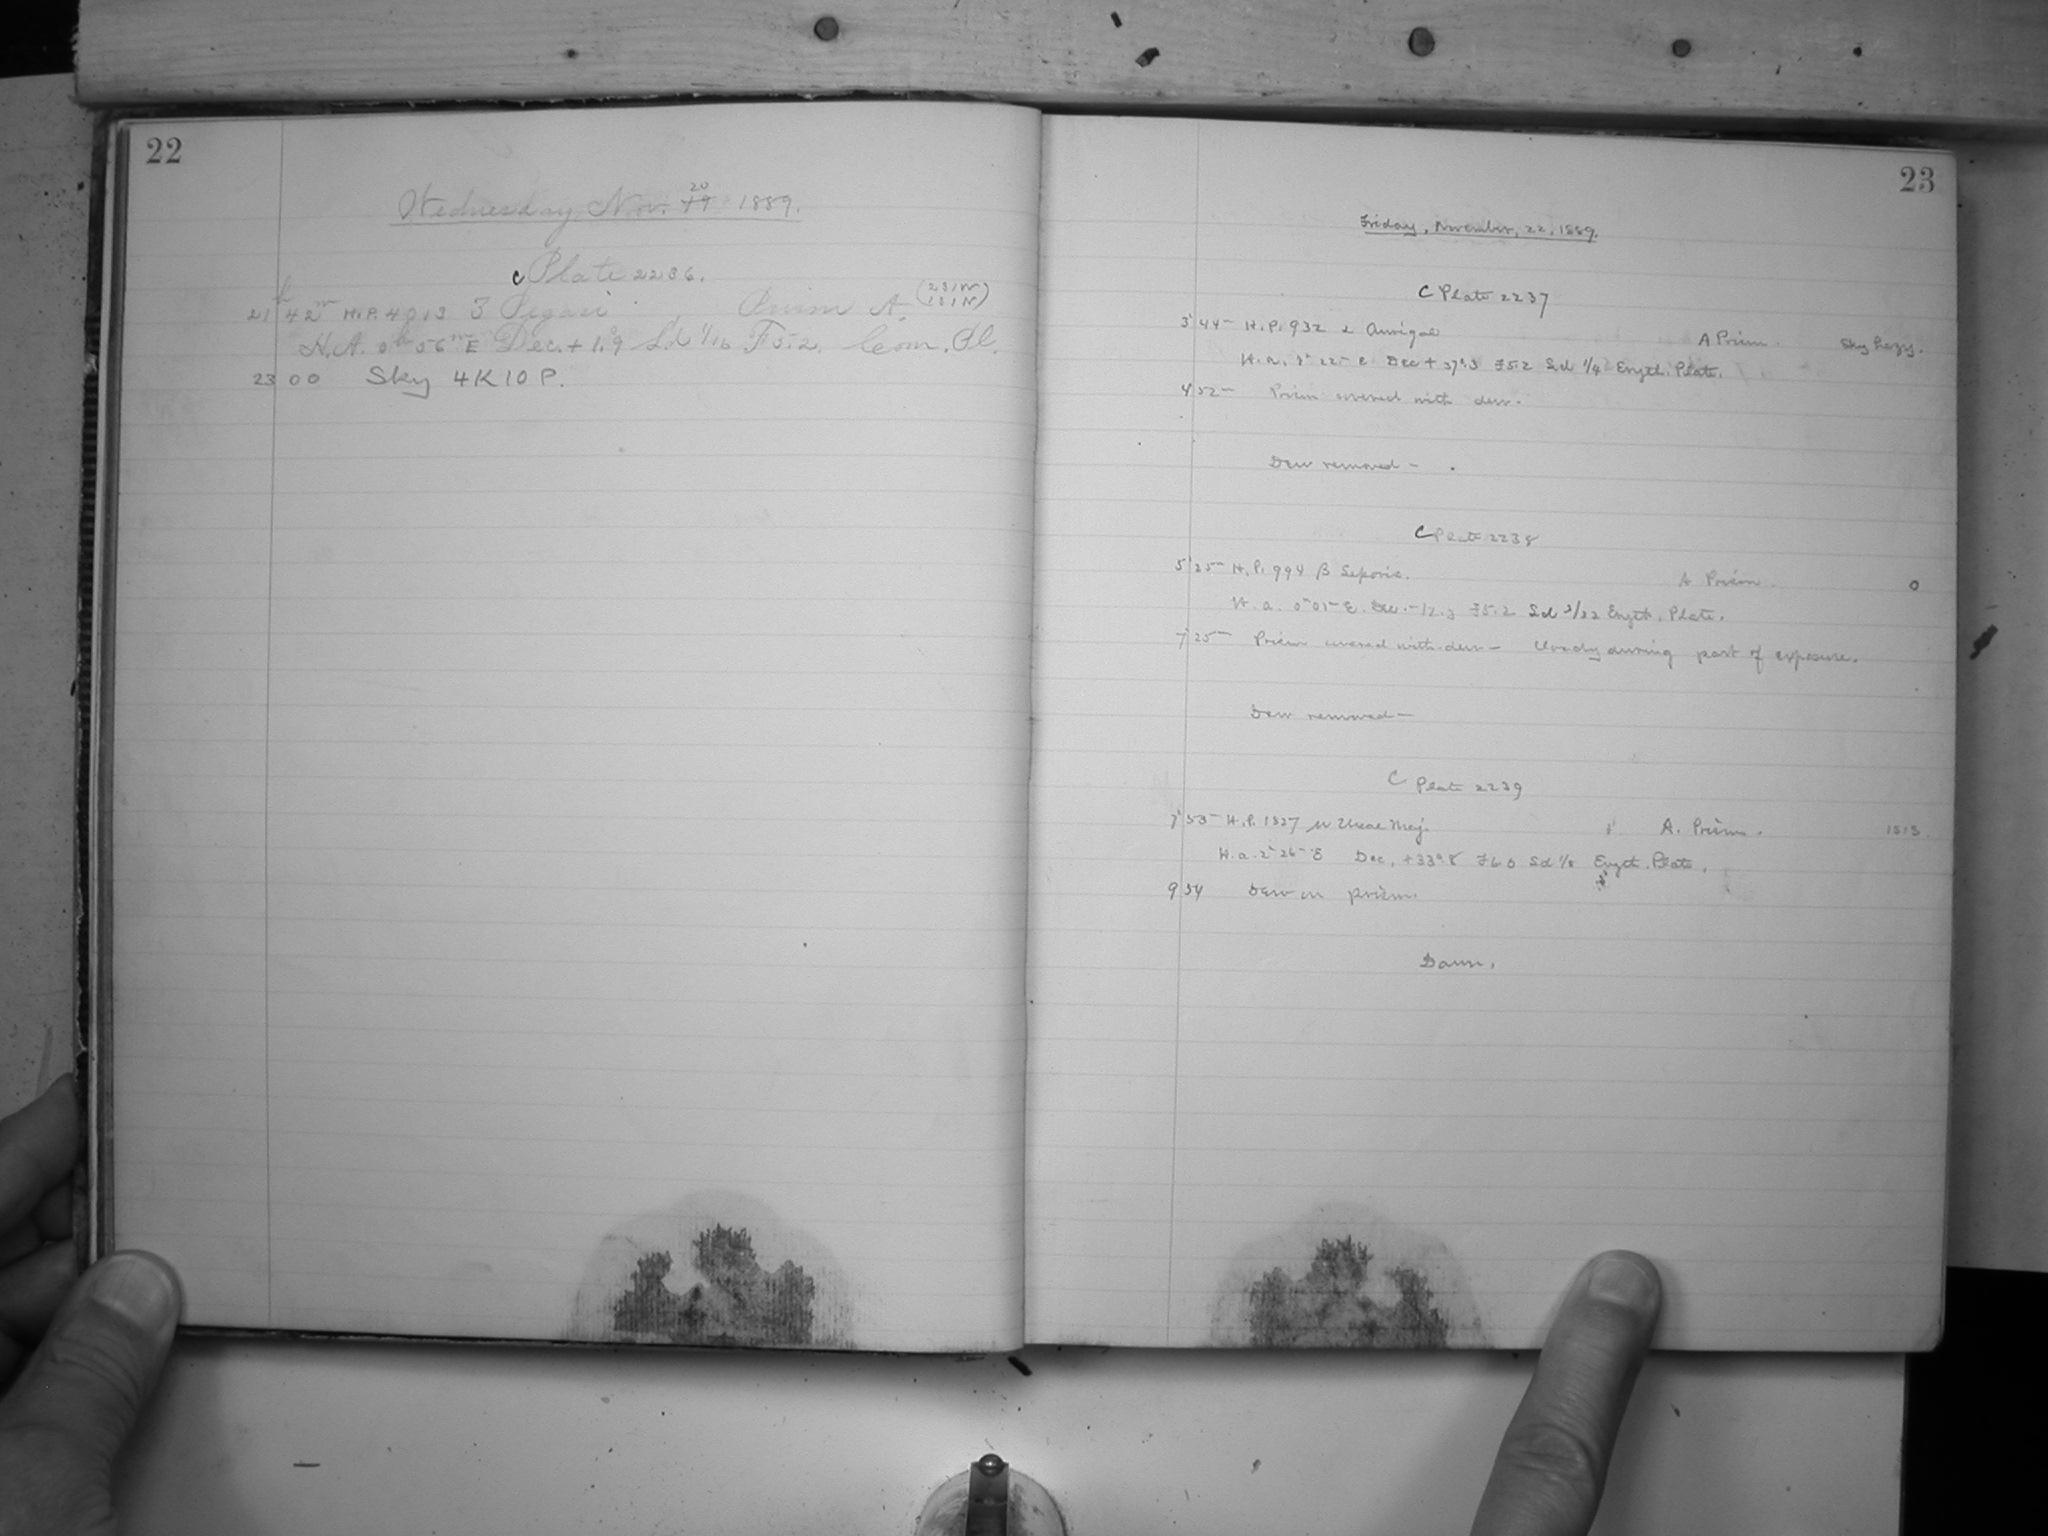 22
Wednesday Nov. 19 20 1889.
C Plate 2236.
21h 42m H.P. 4013 3 Pegasi Prism A.
H.A. 0h 56m E Dec. + 1.°9 Sd 1/16 F 5.2. Com. Pl.
23 00 Sky 4K10P.
23
Friday, November, 22, 1889.
C Plate 2237
3 44m H.P. 932 α Aurigae A Prism. Sky hazy.
H.a. 22m E Dec + 37°.3 F5.2 Sd 1/4 Eryth. Plate.
4 52m Prism covered with dew.
Dew removed —
C Plate 2238
5 25m H.P. 994 β Leporis. A Prism. 0
H.a. 0h 01m E. Dec. - 12.3 F5.2 Sd 3/32 Eryth. Plate.
7 25m Prism covered with dew — Cloudy during part of exposure.
Dew removed —
C Plate 2239
7 53m H.P. 1827 μ Ursae Maj. A. Prism.
H.a. 2h 26m E Dec, +33°.8 F60 Sd 1/8 Eryth. Plate.
9 54 Dew on prism.
Dawn.